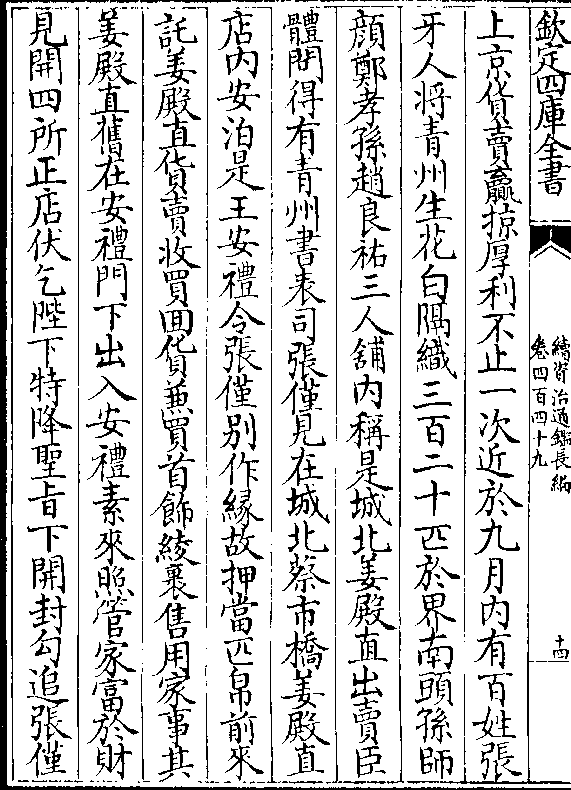 欽定四庫全書
續資治通鑑長編
卷四百四十九
十四
上京貨賣贏掠厚利不止一次近於九月內有百姓張
牙人將青州生花白隔織三百二十匹於界南頭孫師
顔鄭孝孫趙良祐三人舖內稱是城北姜殿直出賣臣
體問得有青州書表司張僅見在城北蔡市橋姜殿直
店內安泊是王安禮令張僅別作緣故押當匹帛前來
託姜殿直貨賣收買囬貨兼買首飾綾裹售用家事其
姜殿直舊在安禮門下出入安禮素來照管家富於財
見開四所正店伏乞陛下特降聖旨下開封勾追張僅